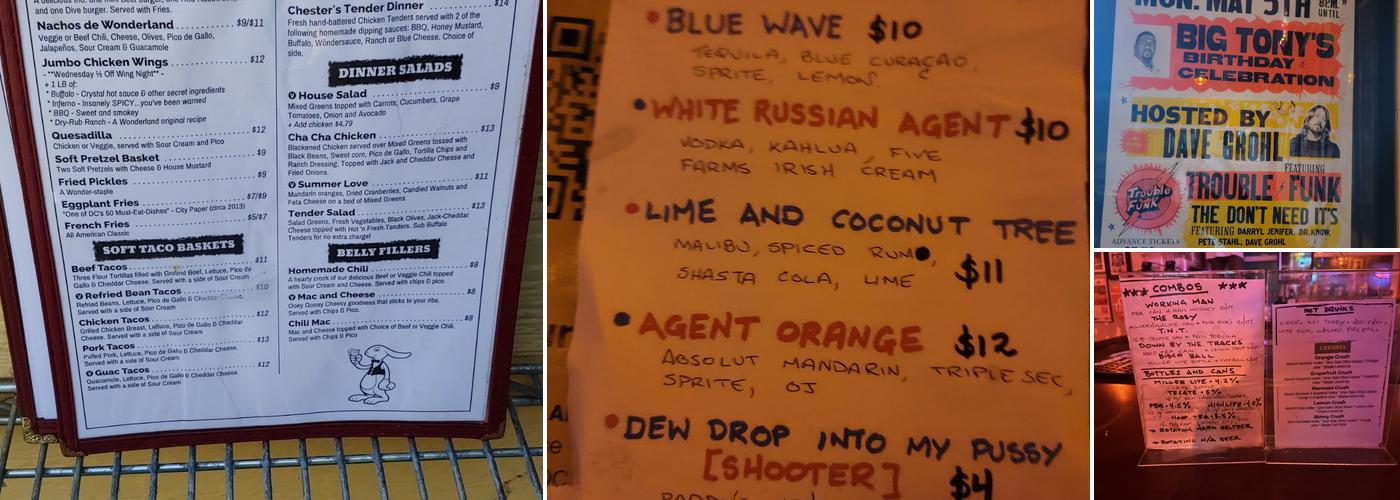 and one Dive burger. Served with Fries.
Nachos de Wonderland $9/$11
Veggie or Beef Chili, Cheese, Olives, Pico de Gallo,
Jalapeños, Sour Cream & Guacamole
Jumbo Chicken Wings $12
- **Wednesday ½ Off Wing Night** -
+ 1 LB of:
* Buffalo - Crystal hot sauce & other secret ingredients
* Inferno - Insanely SPICY...you've been warned
* BBQ - Sweet and smokey
* Dry-Rub Ranch - A Wonderland original recipe
Quesadilla $12
Chicken or Veggie, served with Sour Cream and Pico
Soft Pretzel Basket $9
Two Soft Pretzels with Cheese & House Mustard
Fried Pickles $9
A Wonder-staple
Eggplant Fries $7/$9
"One of DC's 50 Must-Eat-Dishes" - City Paper (circa 2013)
French Fries $5/$7
All American Classic
SOFT TACO BASKETS
Beef Tacos $11
Three Flour Tortillas filled with Ground Beef, Lettuce, Pico de
Gallo & Cheddar Cheese. Served with a side of Sour Cream
V Refried Bean Tacos $10
Refried Beans, Lettuce, Pico de Gallo & Cheddar Cheese.
Served with a side of Sour Cream
Chicken Tacos $12
Grilled Chicken Breast, Lettuce, Pico de Gallo & Cheddar
Cheese. Served with a side of Sour Cream
Pork Tacos $13
Pulled Pork, Lettuce, Pico de Gallo & Cheddar Cheese.
Served with a side of Sour Cream
V Guac Tacos $12
Guacamole, Lettuce, Pico de Gallo & Cheddar Cheese.
Served with a side of Sour Cream
Chester's Tender Dinner $14
Fresh hand-battered Chicken Tenders served with 2 of the
following homemade dipping sauces: BBQ, Honey Mustard,
Buffalo, Wondersauce, Ranch or Blue Cheese. Choice of
side.
DINNER SALADS
V House Salad $9
Mixed Greens topped with Carrots, Cucumbers, Grape
Tomatoes, Onion and Avocado
+ Add chicken $4.79
Cha Cha Chicken $13
Blackened Chicken served over Mixed Greens tossed with
Black Beans, Sweet corn, Pico de Gallo, Tortilla Chips and
Ranch Dressing. Topped with Jack and Cheddar Cheese and
Fried Onions.
V Summer Love $11
Mandarin oranges, Dried Cranberries, Candied Walnuts and
Feta Cheese on a bed of Mixed Greens
Tender Salad $13
Salad Greens, Fresh Vegetables, Black Olives, Jack-Cheddar
Cheese topped with Hot 'n Fresh Tenders. Sub Buffalo
Tenders for no extra charge!
BELLY FILLERS
Homemade Chili $8
A hearty crock of our delicious Beef or Veggie Chili topped
with Sour Cream and Cheese. Served with chips & pico.
V Mac and Cheese $8
Ooey Gooey Cheesy goodness that sticks to your ribs.
Served with Chips & Pico.
Chili Mac $8
Mac and Cheese topped with Choice of Beef or Veggie Chili.
Served with Chips & Pico
BLUE WAVE $10
TEQUILA, BLUE CURAÇAO,
SPRITE, LEMON
WHITE RUSSIAN AGENT $10
VODKA, KAHLUA, FIVE
FARMS IRISH CREAM
LIME AND COCONUT TREE
MALIBU, SPICED RUM,
SHASTA COLA, LIME $11
AGENT ORANGE $12
ABSOLUT MANDARIN, TRIPLE SEC,
SPRITE, OJ
DEW DROP INTO MY PUSSY
[SHOOTER] $4
MON. MAY 5TH 8PM. UNTIL
BIG TONY'S
BIRTHDAY
CELEBRATION
HOSTED BY
DAVE GROHL
FEATURING
Trouble Funk
TROUBLE FUNK
THE DON'T NEED IT'S
FEATURING DARRYL JENIFER, DR. KNOW,
PETE STAHL, DAVE GROHL
ADVANCE TICKETS
*** COMBOS ***
WORKING MAN
PBR CAN & RAIL WHISKEY SHOT
THE ROBY
T.N.T.
DOWN BY THE TRACKS
DISCO BALL
BOTTLES AND CANS
MILLER LITE • 4.2%
TECATE • 5%
PBR • 4.5% HIGHLIFE • 4.5%
HOOP TEA • 5.5%
ROTATING HARD SELTZER
ROTATING N/A BEER
HOT DRINKS
CRUSHES
Orange Crush
Grapefruit Crush
Mermaid Crush
Lemon Crush
Skinny Crush